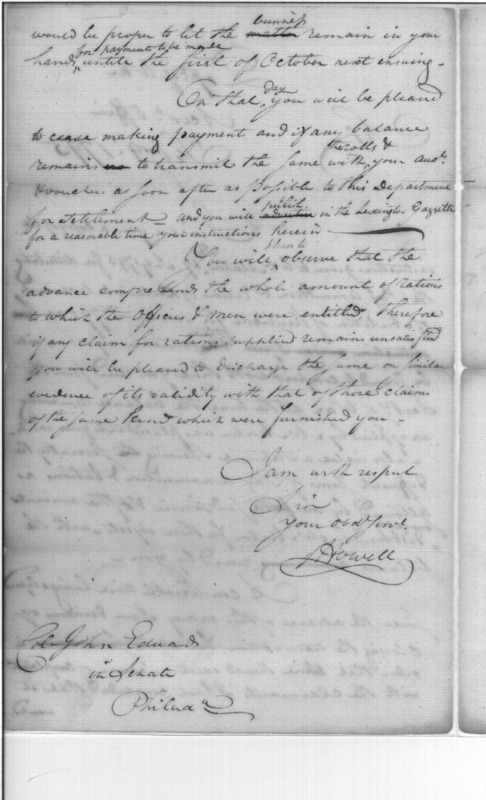 would be proper to let the ~~matter~~ business remain in your
hands for payments to be made untile the first of October next ensuing.
On that Day you will be pleased
to cease making payments and if any balance
remains to transmit the same with the rolls & your auxy.
vouchers as soon after as possible to this Department
for settlement and you will ~~advertise~~ publish in the Lexington Gazzette
for a reasonable time your instructions herein
You will please to observe that the
advance comprehends the whole amount of rations
to which the officers & men were entitled, therefore
if any claim for rations supplied remains unsatisfied
you will be pleased to discharge the same on similar
evidence of its validity with that of those claims
of the same kind which were furnished you.
I am with respect
Sir
Your Obdt Servt
J Howell
Colo John Edwards
in Senate
Philada